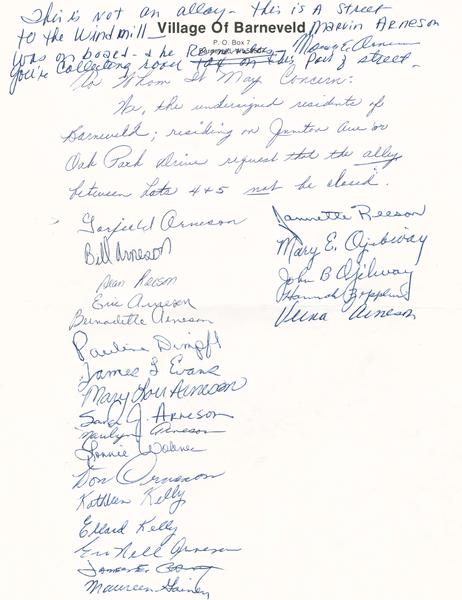 This is not an alley - this is A street
to the Windmill
Village Of Barneveld
Marvin Arneson
P. O. Box 7
was on board - & he
Mary E. Arneson
You're collecting road tax on this Part of street.
To Whom It May Concern:
We, the undersigned residents of
Barneveld; residing on Jenton Ave or
Oak Park Drive request that the alley
between Lots 4 & 5 not be closed.
Garfield Arneson
Bill Arneson
Dean Reeson
Eric Arneson
Bernadette Arneson
Pauline Dimpfl
James L Evans
Mary Lou Arneson
Sara J. Arneson
Marilyn Arneson
Don Arneson
Kathleen Kelly
Ellard Kelly
Arneson
Maureen
Jannette Reeson
Mary E. Ogilway
John B Ogilway
Hannah
Verna Arneson